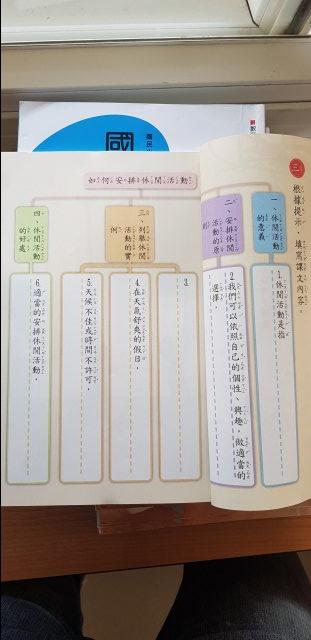 三
根據提示，填寫課文內容。
如何安排休閒活動
一、休閒活動
的意義
1.休閒活動是指
二、安排休閒
活動的原
則
2.我們可以依照自己的個性、興趣，做適當的
選擇，
三、列舉休閒
活動的實
例
3.
4.在天氣舒爽的假日，
5.天候不佳或時間不許可，
四、休閒活動
的好處
6.適當的安排休閒活動，
國
國民小